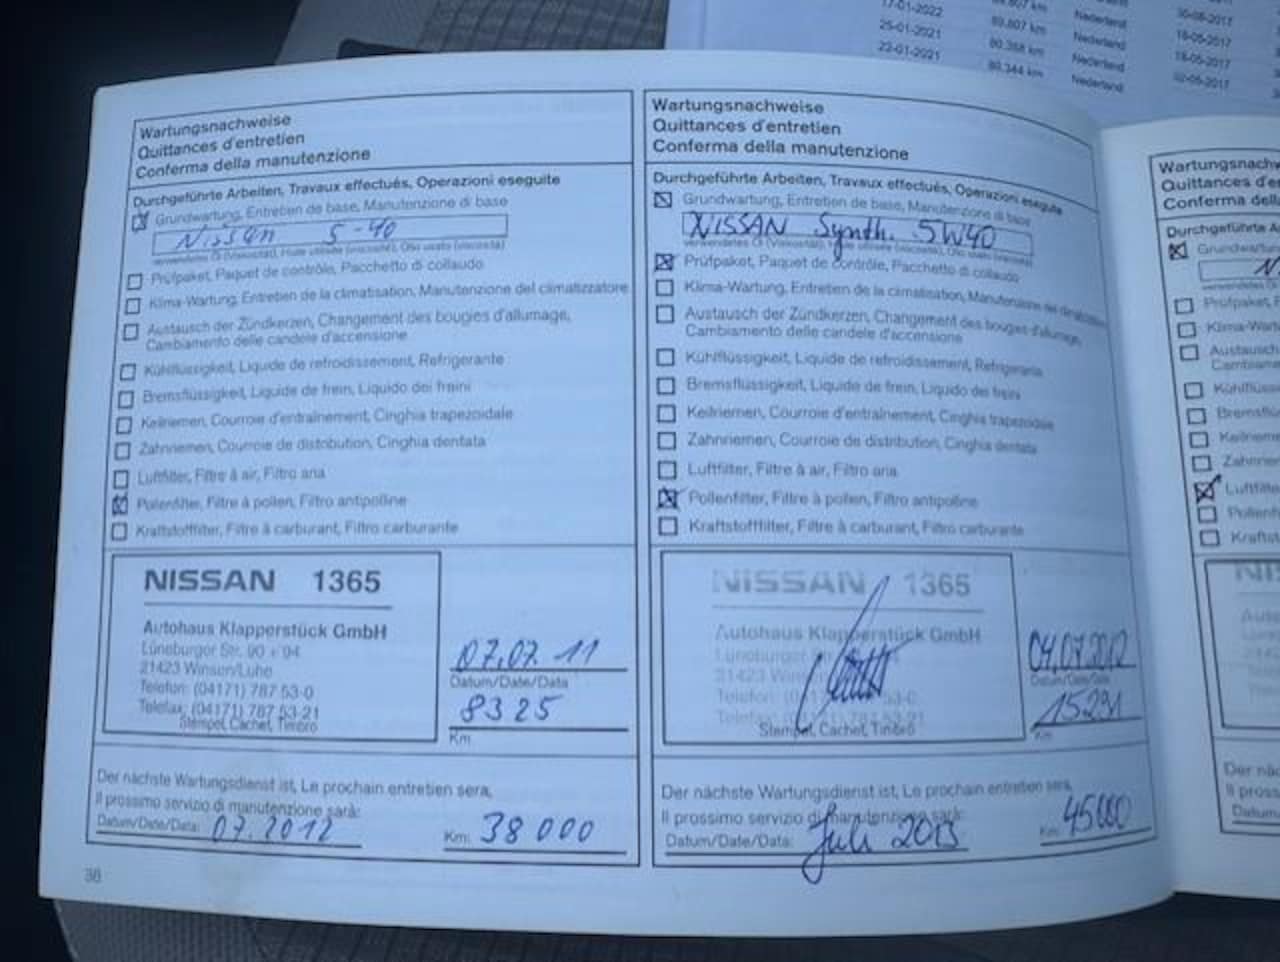 17-01-2022
Nederland
25-01-2021 89.807 km Nederland 18-05-2017
22-01-2021 80.358 km Nederland 18-05-2017
80.344 km Nederland 02-05-2017
Wartungsnachweise
Quittances d'entretien
Conferma della manutenzione
Durchgeführte Arbeiten, Travaux effectués, Operazioni eseguite
Grundwartung, Entretien de base, Manutenzione di base
Nissan 5-40
verwendetes Öl (Viskosität), Huile utilisée (viscosité), Olio usato (viscosità)
Prüfpaket, Paquet de contrôle, Pacchetto di collaudo
Klima-Wartung, Entretien de la climatisation, Manutenzione del climatizzatore
Austausch der Zündkerzen, Changement des bougies d'allumage,
Cambiamento delle candele d'accensione
Kühlflüssigkeit, Liquide de refroidissement, Refrigerante
Bremsflüssigkeit, Liquide de frein, Liquido dei freini
Keilriemen, Courroie d'entraînement, Cinghia trapezoidale
Zahnriemen, Courroie de distribution, Cinghia dentata
Luftfilter, Filtre à air, Filtro aria
Pollenfilter, Filtre à pollen, Filtro antipolline
Kraftstofffilter, Filtre à carburant, Filtro carburante
NISSAN 1365
Autohaus Klapperstück GmbH
Lüneburger Str. 90 + 94
21423 Winsen/Luhe
Telefon: (04171) 787 53-0
Telefax: (04171) 787 53-21
Stempel, Cachet, Timbro
07.07.11
Datum/Date/Data
8325
Km
Der nächste Wartungsdienst ist, Le prochain entretien sera,
Il prossimo servizio di manutenzione sarà:
Datum/Date/Data: 07.2012 Km: 38000
38
Wartungsnachweise
Quittances d'entretien
Conferma della manutenzione
Durchgeführte Arbeiten, Travaux effectués, Operazioni eseguite
Grundwartung, Entretien de base, Manutenzione di base
NISSAN Synth. 5W40
verwendetes Öl (Viskosität), Huile utilisée (viscosité), Olio usato (viscosità)
Prüfpaket, Paquet de contrôle, Pacchetto di collaudo
Klima-Wartung, Entretien de la climatisation, Manutenzione del climatizzatore
Austausch der Zündkerzen, Changement des bougies d'allumage,
Cambiamento delle candele d'accensione
Kühlflüssigkeit, Liquide de refroidissement, Refrigerante
Bremsflüssigkeit, Liquide de frein, Liquido dei freini
Keilriemen, Courroie d'entraînement, Cinghia trapezoidale
Zahnriemen, Courroie de distribution, Cinghia dentata
Luftfilter, Filtre à air, Filtro aria
Pollenfilter, Filtre à pollen, Filtro antipolline
Kraftstofffilter, Filtre à carburant, Filtro carburante
NISSAN 1365
Autohaus Klapperstück GmbH
Lüneburger
21423
Telefon:
Stempel, Cachet, Timbro
04.07.2012
Datum/Date/Data
15291
Km
Der nächste Wartungsdienst ist, Le prochain entretien sera,
Il prossimo servizio di manutenzione sarà:
Datum/Date/Data: Juli 2013 Km: 45000
Wartungsnachw
Quittances d'e
Conferma dell
Durchgeführte A
Grundwartun
N
Prüfpaket, F
Klima-Wart
Austausch
Cambiame
Kühlflüss
Bremsflü
Keilriem
Zahnrie
Luftfilte
Pollenf
Kraftst
Der näc
Il pross
Datum